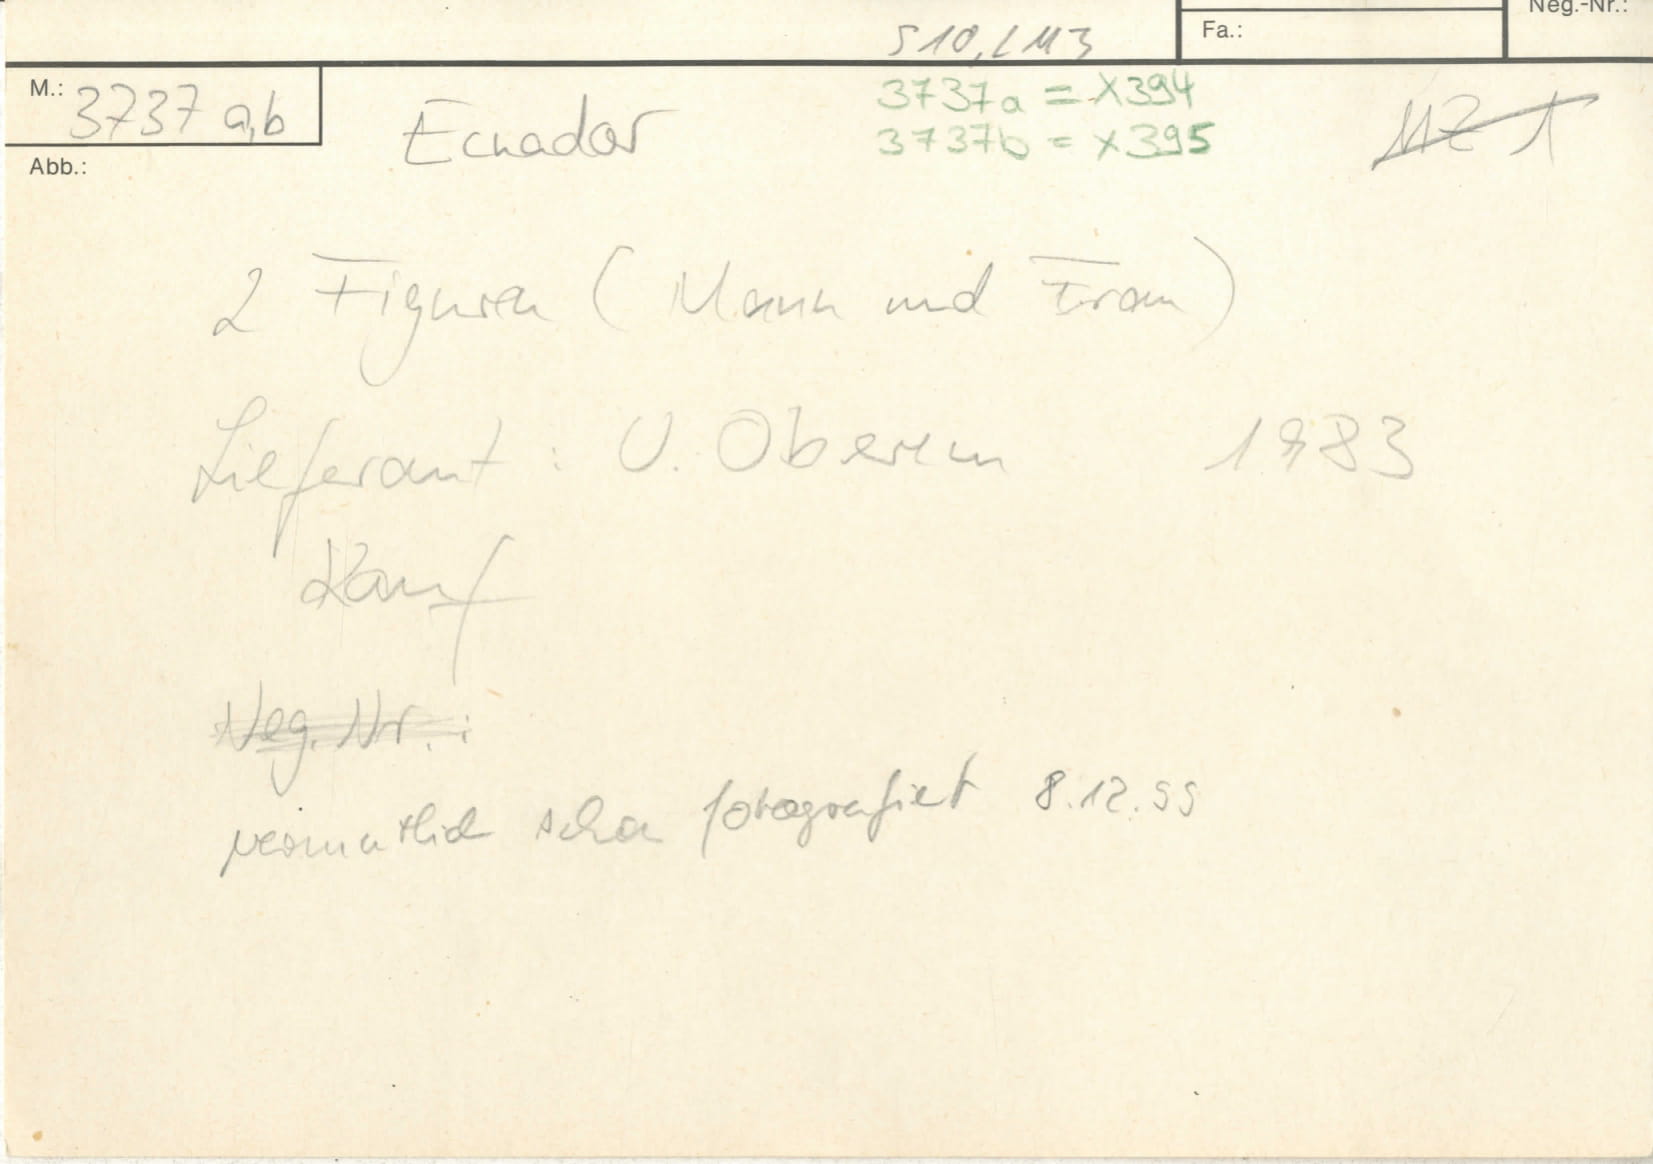 Neg.-Nr.:
S10, LM3
Fa.:
M.: 3737 a,b
Ecuador
3737a = X394
3737b = X395
MZ 1
Abb.:
2 Figuren (Mann und Frau)
Lieferant: U. Oberem 1983
Kauf
Neg. Nr.:
vermutlich schon fotografiert 8.12.99